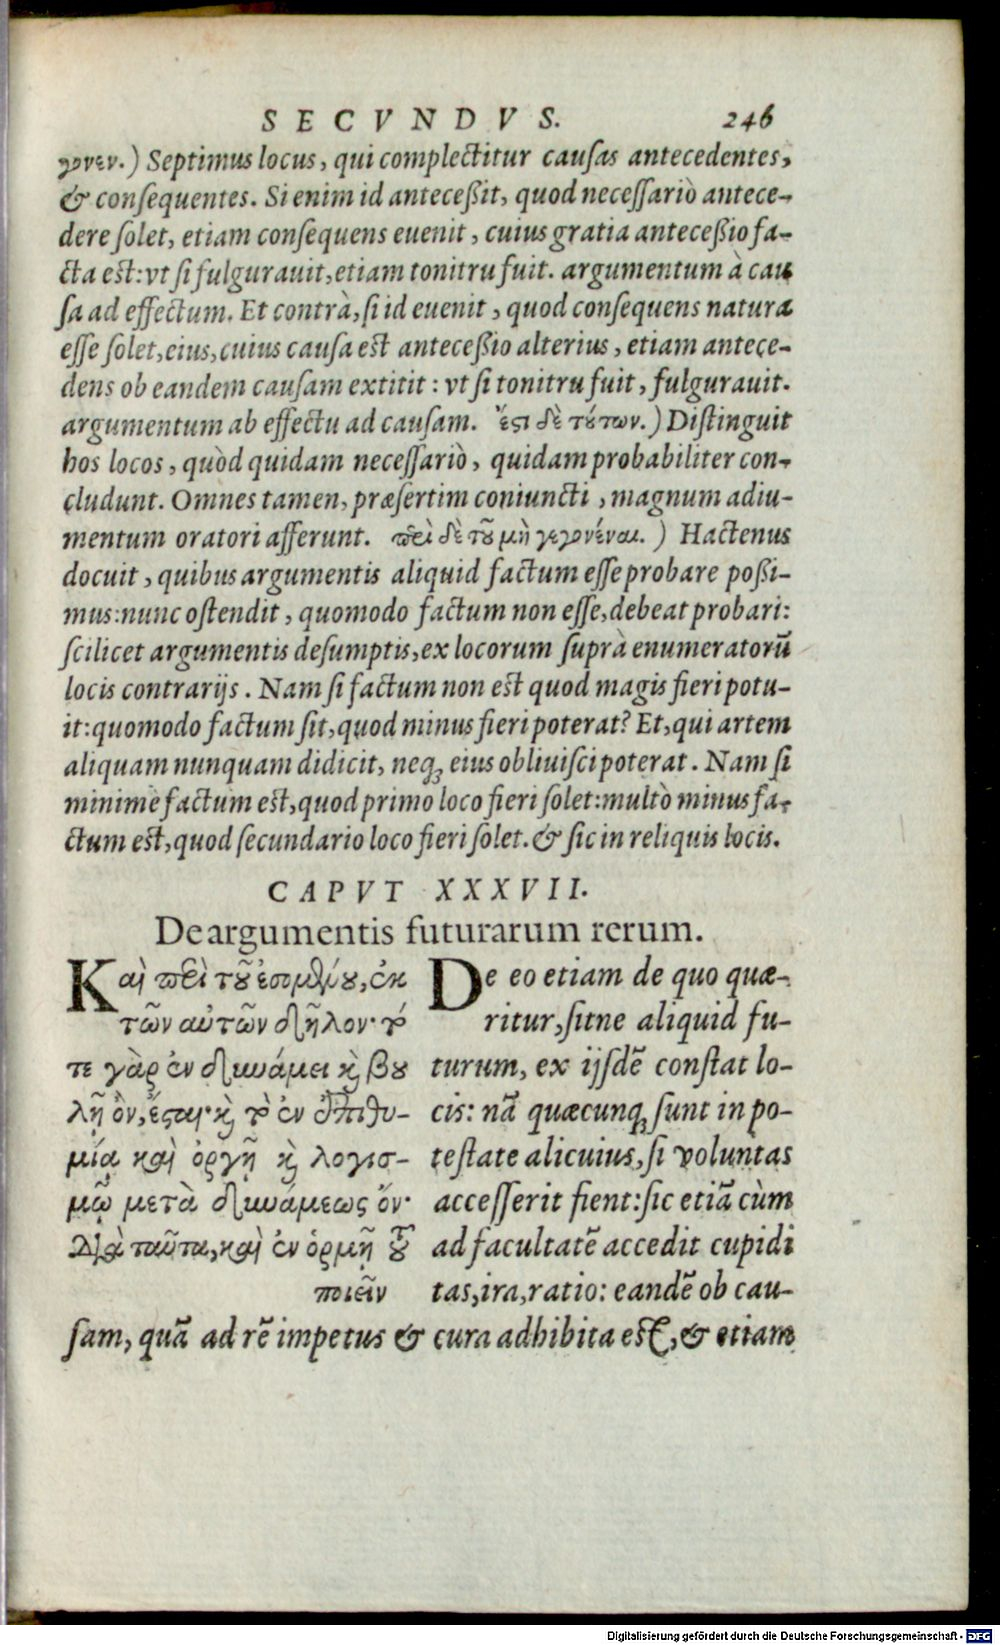 SECVNDVS. 246
γονεν.) Septimus locus, qui complectitur causas antecedentes,
& consequentes. Si enim id anteceßit, quod necessariò antece-
dere solet, etiam consequens euenit, cuius gratia anteceßio fa-
cta est: vt si fulgurauit, etiam tonitru fuit. argumentum à cau
sa ad effectum. Et contrà, si id euenit, quod consequens natura
esse solet, eius, cuius causa est anteceßio alterius, etiam antece-
dens ob eandem causam extitit: vt si tonitru fuit, fulgurauit.
argumentum ab effectu ad causam. ἔϛι δὲ τούτων.) Distinguit
hos locos, quòd quidam necessariò, quidam probabiliter con-
cludunt. Omnes tamen, præsertim coniuncti, magnum adiu-
mentum oratori afferunt. περὶ δὲ τοῦ μὴ γεγονέναι.) Hactenus
docuit, quibus argumentis aliquid factum esse probare poßi-
mus: nunc ostendit, quomodo factum non esse, debeat probari:
scilicet argumentis desumptis, ex locorum suprà enumeratorũ
locis contrarijs. Nam si factum non est quod magis fieri potu-
it: quomodo factum sit, quod minus fieri poterat? Et, qui artem
aliquam nunquam didicit, neq; eius obliuisci poterat. Nam si
minimè factum est, quod primo loco fieri solet: multò minus fa-
ctum est, quod secundario loco fieri solet. & sic in reliquis locis.
CAPVT XXXVII.
De argumentis futurarum rerum.
Καὶ περὶ τοῦ ἐσομένου, ἐκ
τῶν αὐτῶν δῆλον· τό
τε γὰρ ἐν δυνάμει καὶ βου
λῇ ὂν, ἔϛαι· καὶ τὸ ἐν ἐπιθυ-
μίᾳ καὶ ὀργῇ καὶ λογισ-
μῷ μετὰ δυνάμεως ὄν·
διὰ ταῦτα, καὶ ἐν ὁρμῇ τοῦ
ποιεῖν
De eo etiam de quo quæ-
ritur, sitne aliquid fu-
turum, ex ijsdẽ constat lo-
cis: nã quæcunq; sunt in po-
testate alicuius, si voluntas
accesserit fient: sic etiã cùm
ad facultatẽ accedit cupidi
tas, ira, ratio: eandẽ ob cau-
sam, quã ad rẽ impetus & cura adhibita est, & etiam
Digitalisierung gefördert durch die Deutsche Forschungsgemeinschaft - DFG